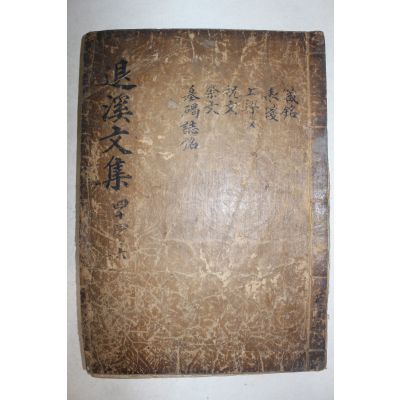 箴銘
表箋
上樑文
祝文
祭文
墓碣誌銘
退溪文集 四十